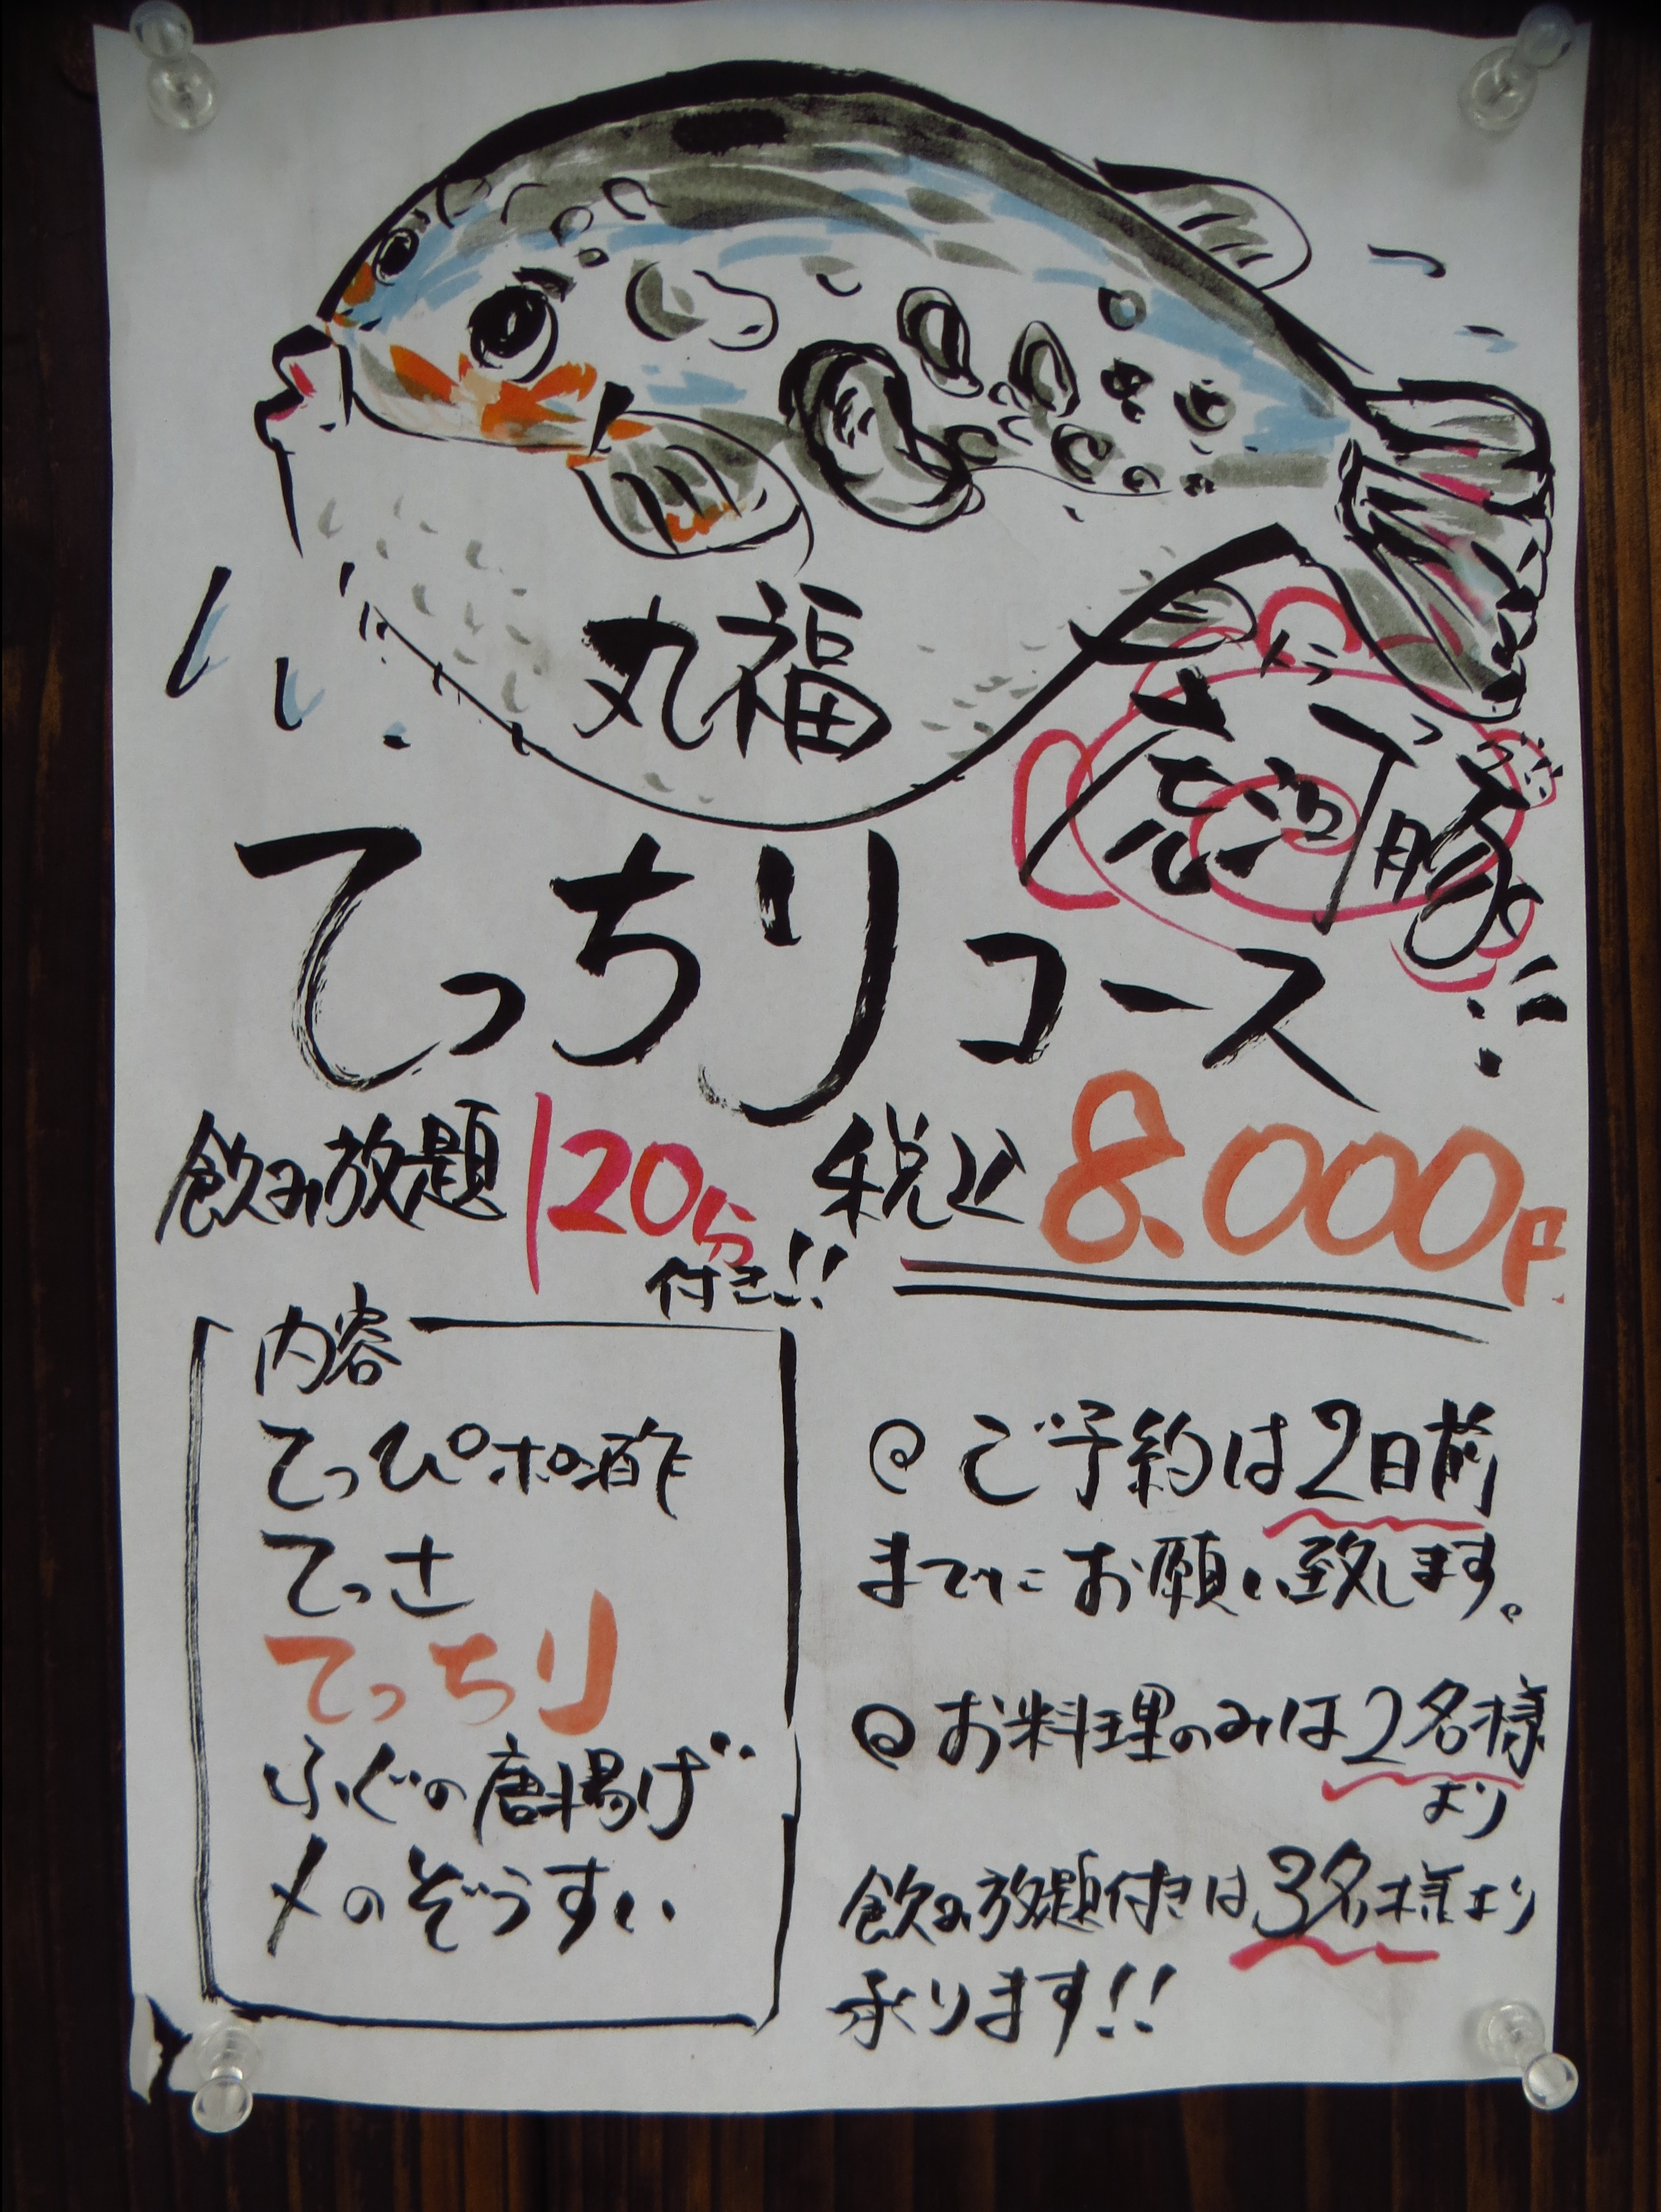 丸福
トラ フグ
虎河豚
てっちりコース
飲み放題120分付き!!
税込8.000円
内容
てっぴポン酢
てっさ
てっちり
ふぐの唐揚げ
〆のぞうすい
@ ご予約は2日前
までにお願い致します。
@ お料理のみは2名様
より
飲み放題付きは3名様より
承ります!!